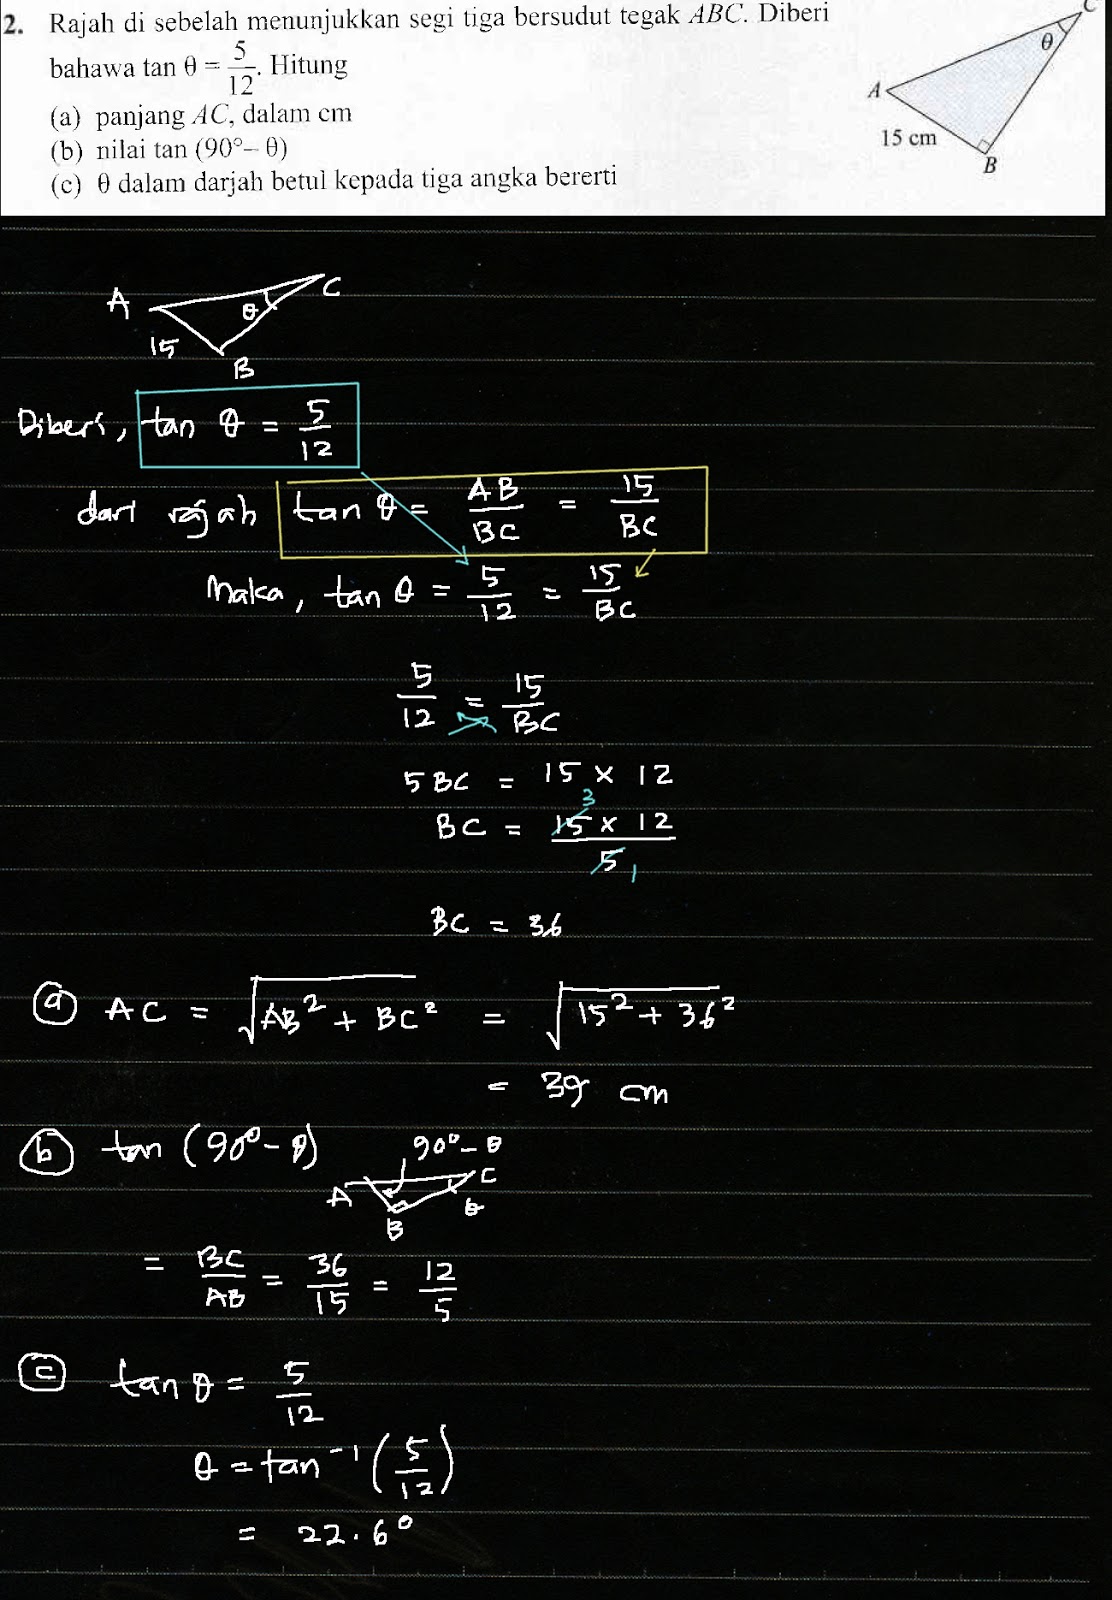 2. Rajah di sebelah menunjukkan segi tiga bersudut tegak ABC. Diberi
bahawa tan θ = 5/12. Hitung
(a) panjang AC, dalam cm
(b) nilai tan (90°– θ)
(c) θ dalam darjah betul kepada tiga angka bererti
C
θ
A
15 cm
B
A
C
θ
15
B
Diberi, tan θ = 5/12
dari rajah tan θ = AB/BC = 15/BC
Maka, tan θ = 5/12 = 15/BC
5/12 = 15/BC
5 BC = 15 x 12
3
BC = 15 x 12 / 5
1
BC = 36
a AC = √AB² + BC² = √15² + 36²
= 39 cm
b tan (90° - θ)
90° - θ
A
C
B
θ
= BC/AB = 36/15 = 12/5
c tan θ = 5/12
θ = tan⁻¹ (5/12)
= 22.6°